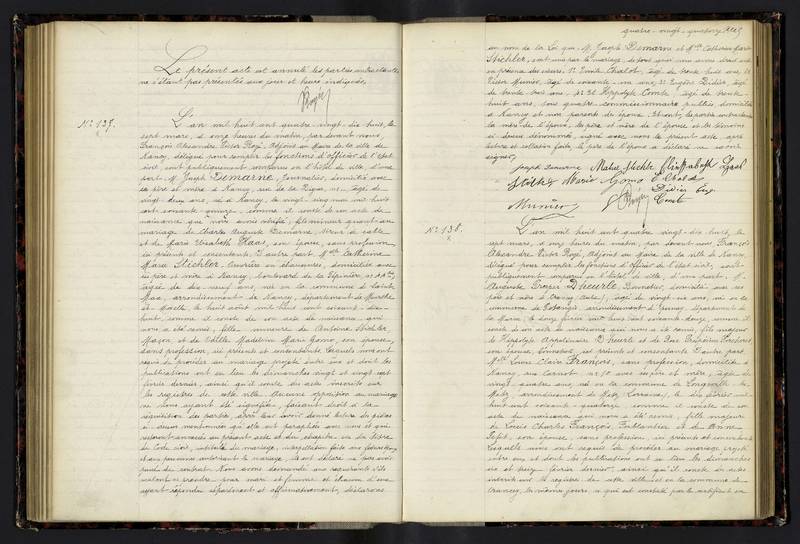 Le présent acte est annulé les parties contractantes
ne s'étant pas présentées aux jour et heure indiqués.
Rozé
No 137.
L'an mil huit cent quatre vingt-dix huit, le
sept mars, à onze heures du matin, par devant nous,
François Alexandre Victor Rozé, Adjoint au Maire de la ville de
Nancy, délégué pour remplir les fonctions d'officier de l'état
civil, ont publiquement comparu en l'hôtel de ville, d'une
part, M. Joseph Demarne, journalier, domicilié avec
ses père et mère à Nancy, rue de la Digue, âgé de
vingt-deux ans, né à Nancy, le vingt-cinq mai mil huit
cent soixante-quinze, comme il conste de son acte de
naissance que nous avons vérifié, fils mineur quant au
mariage de Charles Auguste Demarne,
et de Marie Elisabeth Haas, son épouse, sans profession,
ici présents et consentants. D'autre part, Melle Catherine
Marie Stichler, ouvrière en chaussures, domiciliée avec
ses père et mère à Nancy, boulevard de la Pépinière,
âgée de dix-neuf ans, née en la commune de
arrondissement de Nancy, département de Meurthe
et Moselle, le huit août mil huit cent soixante-dix-
huit, comme il conste de son acte de naissance qui
nous a été remis, fille mineure de Antoine Stichler,
Maçon, et de Madeleine Marie Gomo, son épouse,
sans profession, ici présents et consentants. Lesquels nous ont
requis de procéder au mariage projeté entre eux et dont les
publications ont eu lieu les dimanches vingt et vingt-sept
février dernier, ainsi qu'il conste des actes inscrits sur
les registres de cette ville. Aucune opposition au mariage
ne nous ayant été signifiée, faisant droit à la
réquisition des parties, après leur avoir donné lecture des pièces
ci-dessus mentionnées qui ont été paraphées avec nous et qui
resteront annexées au présent acte et du chapitre six du titre
du Code civil, intitulé du mariage, interpellation faite aux futurs époux
et aux personnes autorisant le mariage, ils ont déclaré ne pas avoir
passé de contrat. Nous avons demandé aux requérants s'ils
veulent se prendre pour mari et femme et chacun d'eux
ayant répondu séparément et affirmativement, déclarons
quatre-vingt-quatorze
au nom de la Loi que M. Joseph Demarne et Melle Catherine Marie
Stichler, sont unis par le mariage, de tout quoi nous avons dressé acte
en présence des sieurs, 1° Emile Chalot, âgé de trente huit ans, 2°
Victor Munier, âgé de soixante-un ans, 3° Eugène Didier, âgé
de trente trois ans, 4° et Hippolyte Comte, âgé de trente-
huit ans, tous quatre commissionnaires publics, domiciliés
à Nancy et non parents des époux. Et ont, les parties contractantes
la mère de l'époux, les père et mère de l'épouse et les témoins
ci-dessus dénommés, signé avec nous le présent acte, après
lecture et collation faite, le père de l'époux a déclaré ne savoir
signer.
Joseph Demarne Marie Stichler Elisabeth Haas
Stichler Marie Gomo E Chalot
Didier Eug
Munier Rozé Comte
No 138.
L'an mil huit cent quatre vingt-dix huit, le
sept mars, à onze heures du matin, par devant nous François
Alexandre Victor Rozé, Adjoint au Maire de la ville de Nancy,
délégué pour remplir les fonctions d'officier de l'état civil, ont
publiquement comparu en l'hôtel de ville, d'une part, M.
Auguste Dheurle, Bonnetier, domicilié avec ses
père et mère à Crancey (Aube), âgé de vingt-six ans, né en la
commune de arrondissement d'Epernay, département de
la Marne, le douze février mil huit cent soixante-douze, comme il
conste de son acte de naissance qui nous a été remis, fils majeur
de Hippolyte Apollinaire Dheurle et de
son épouse, bonnetiers, ici présents et consentants. D'autre part,
Melle Claire François, sans profession, domiciliée à
Nancy, rue Carnot avec ses père et mère, âgée de
vingt-quatre ans, née en la commune de Longeville-lès-
Metz, arrondissement de Metz (Lorraine), le dix février mil-
huit cent soixante-quatorze, comme il conste de son
acte de naissance qui nous a été remis, fille majeure
de Louis Charles François, Ferblantier et de Anne
son épouse, sans profession, ici présents et consentants
Lesquels nous ont requis de procéder au mariage projeté
entre eux et dont les publications ont eu lieu les dimanches
six et treize février dernier, ainsi qu'il conste des actes
inscrits sur les registres de cette ville et en la commune de
Crancey, les mêmes jours, ce qui est constaté par le certificat en